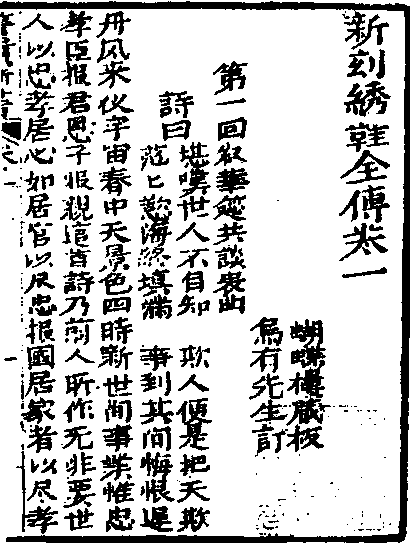 新刻綉鞋全傳卷一
蝴蝶樓藏板
烏有先生訂
第一回叙華筵共談衷曲
詩曰　堪嘆世人不自知　欺人便是把天欺
茫匕慾海終填滿　事到其間悔恨遲
丹鳳來仪宇宙春中天景色四時新世間事業惟忠
孝臣报君恩子报親這首詩乃前人所作无非要世
人以忠孝居心如居官以尽忠报國居家者以尽孝